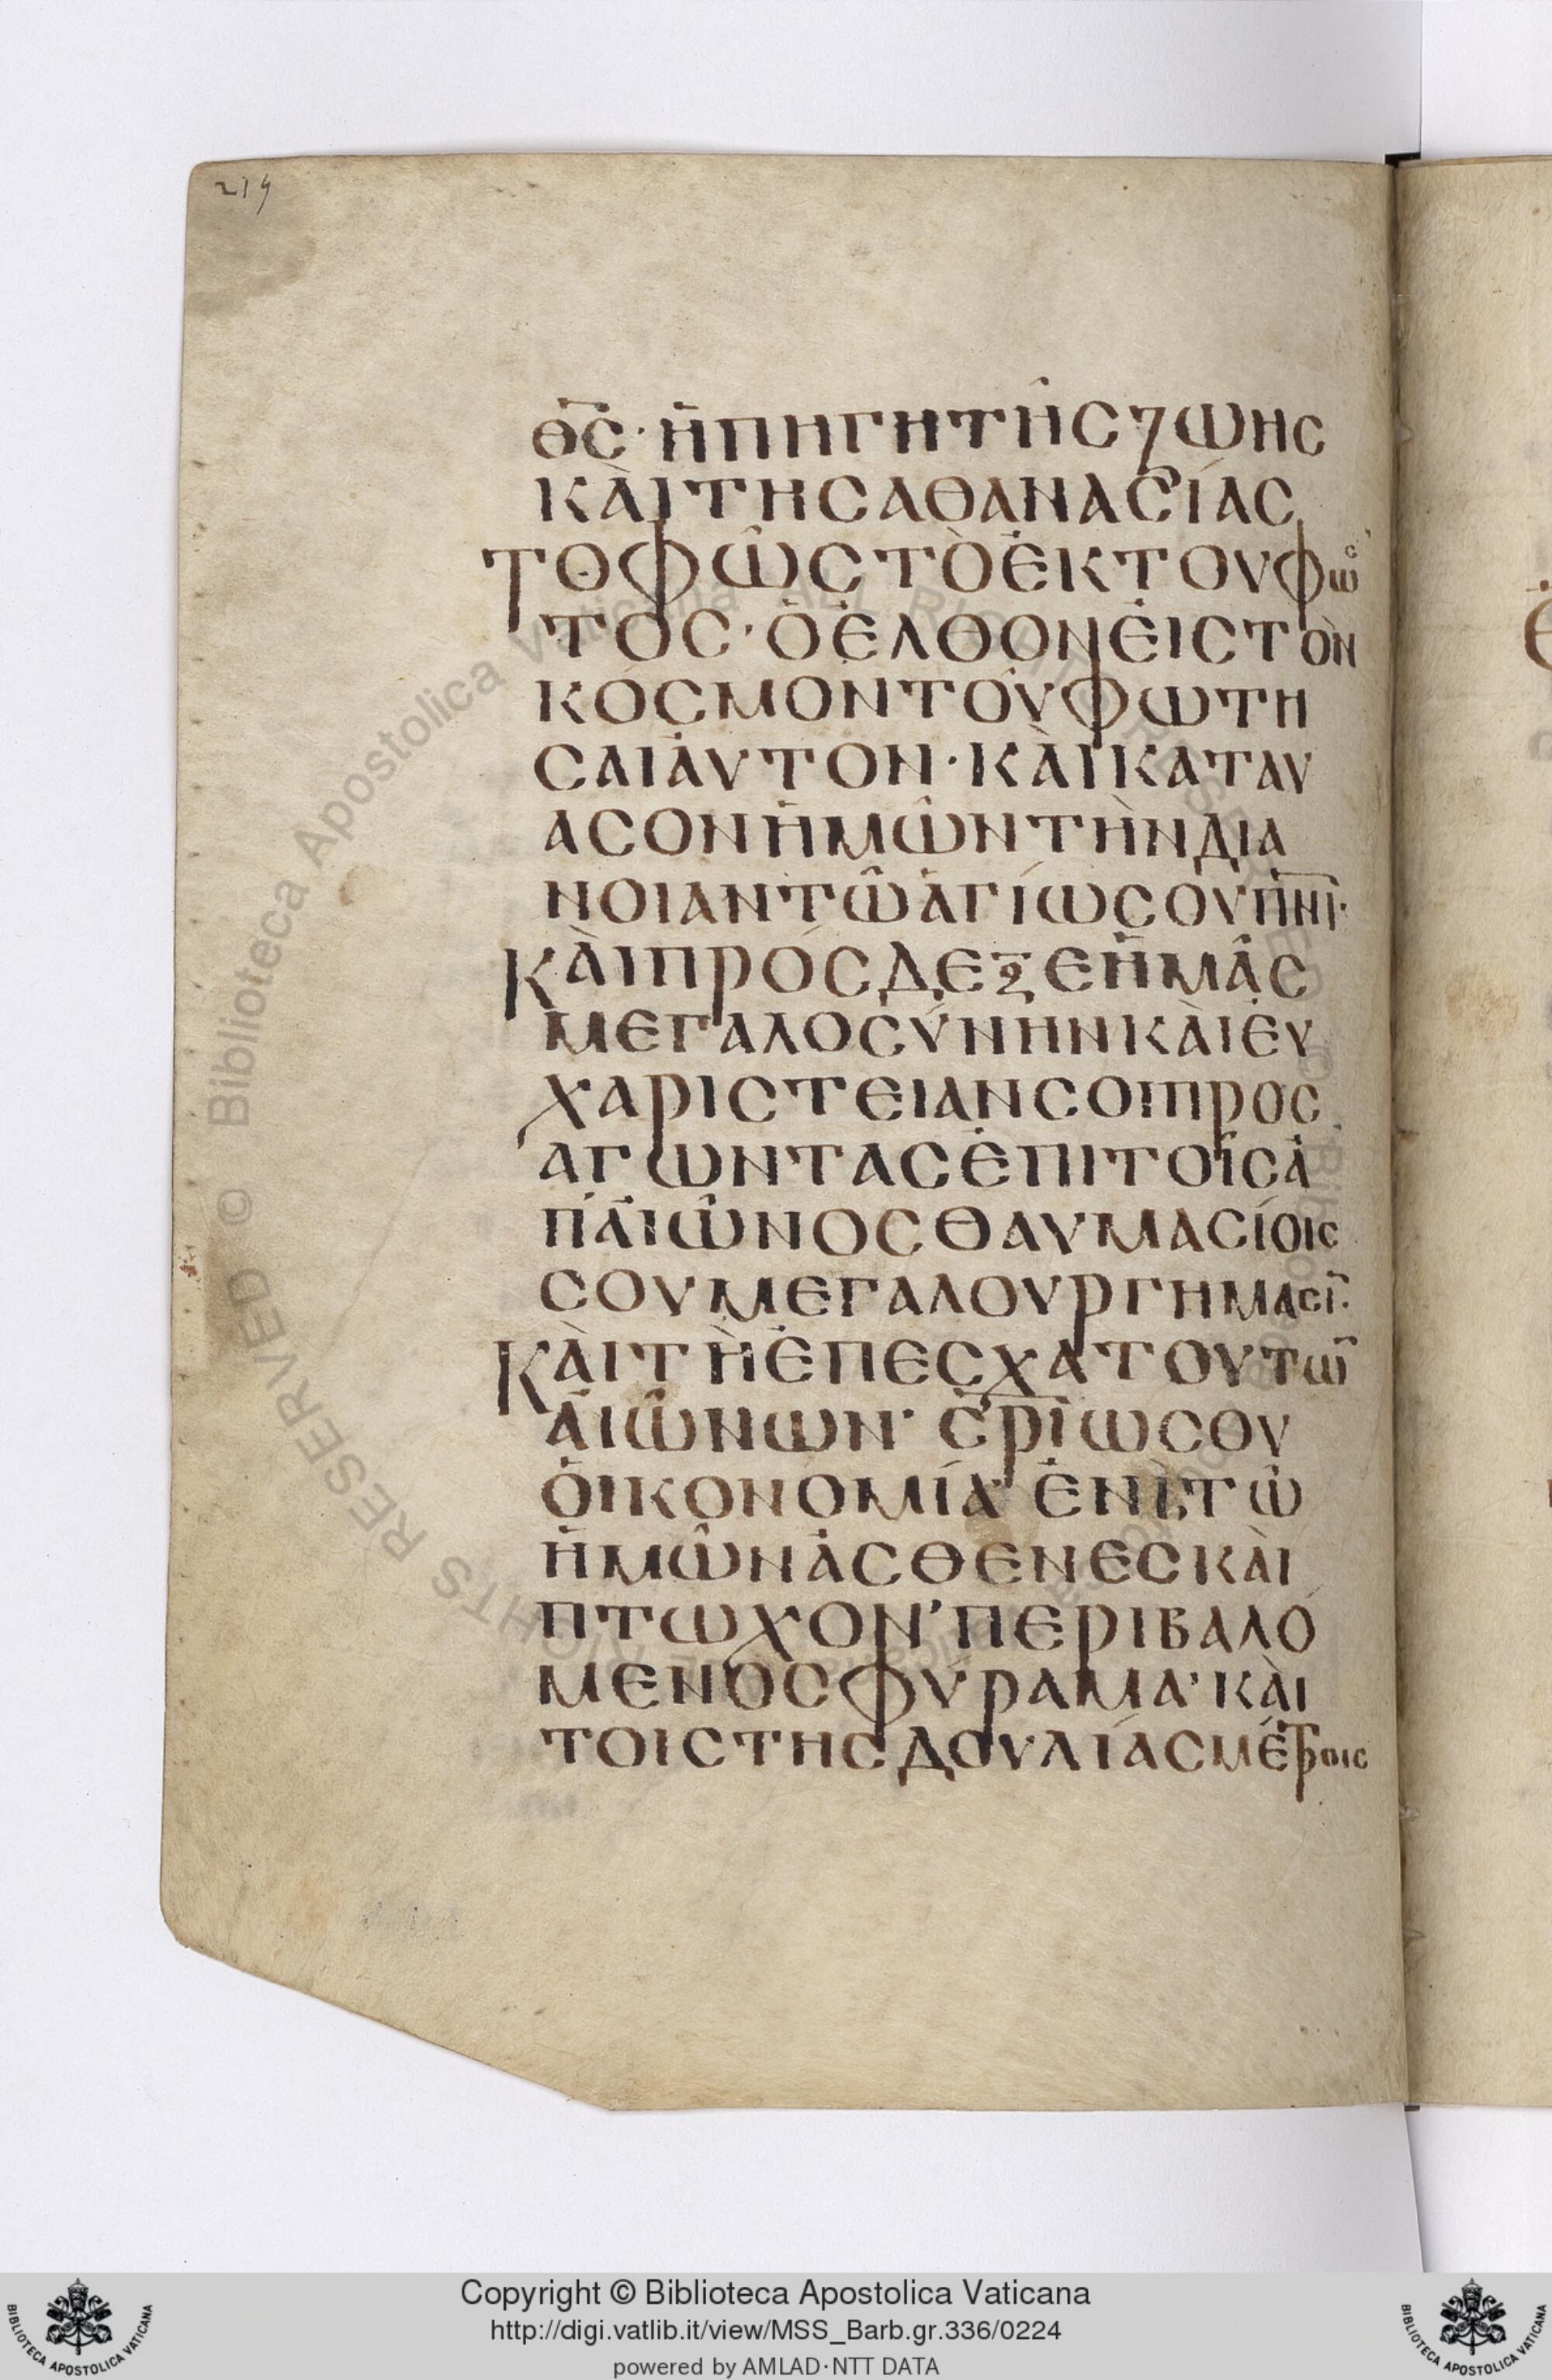 214
θ̅ς̅· ἡ πηγη τῆς ζωης
κὰι της αθανασίας
το φῶς τὸ ἐκ του φω
τος· ὁ ἐλθον ἐις τὸν
κόσμον τοῦ φωτη
σαι ἀυτον· κὰι καταυ
ασον ἡμῶν τὴν δια
νοιαν τῶ ἁγίω σου π̅ν̅ι̅·
κὰι πρόσδεξε ἡμᾶς
μεγαλοσύνην κὰι ἐυ
χαριστειαν σοι προσ
αγωντας ἐπι τοῖς ἀ
π' ἀιῶνος θαυμασίοις
σου μεγαλουργημασι·
κὰι τῆ ἐπ εσχατου τω
ἀιῶνων· σ̅ρ̅ι̅ω σου
ὀικονομία· ἐν ἧ τω
ἡμῶν ἀσθενες κὰι
πτωχον' περιβαλό
μενος φυραμα· κὰι
τοις της δουλίας μέτροις
Copyright © Biblioteca Apostolica Vaticana
http://digi.vatlib.it/view/MSS_Barb.gr.336/0224
powered by AMLAD·NTT DATA
BIBLIOTECA APOSTOLICA VATICANA
BIBLIOTECA APOSTOLICA VATICANA